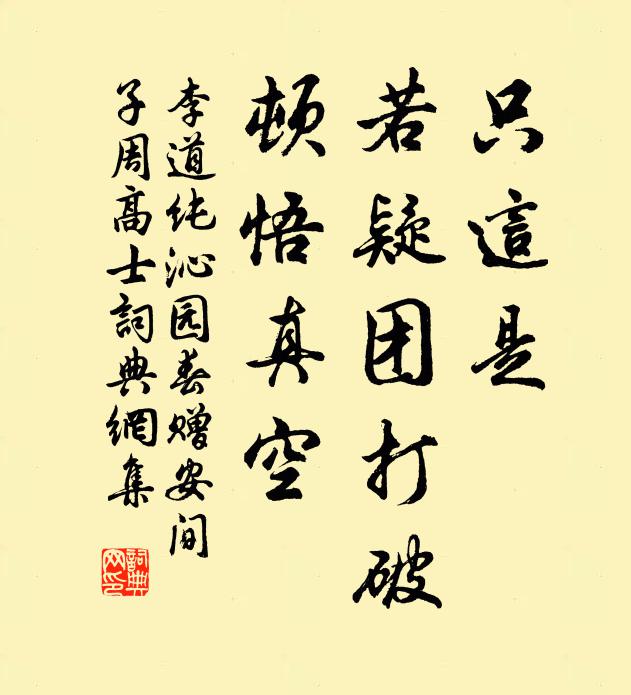 只這是
若疑团打破
顿悟真空
李道纯沁园春赠安间
子周高士詞典網集
詞典
网印